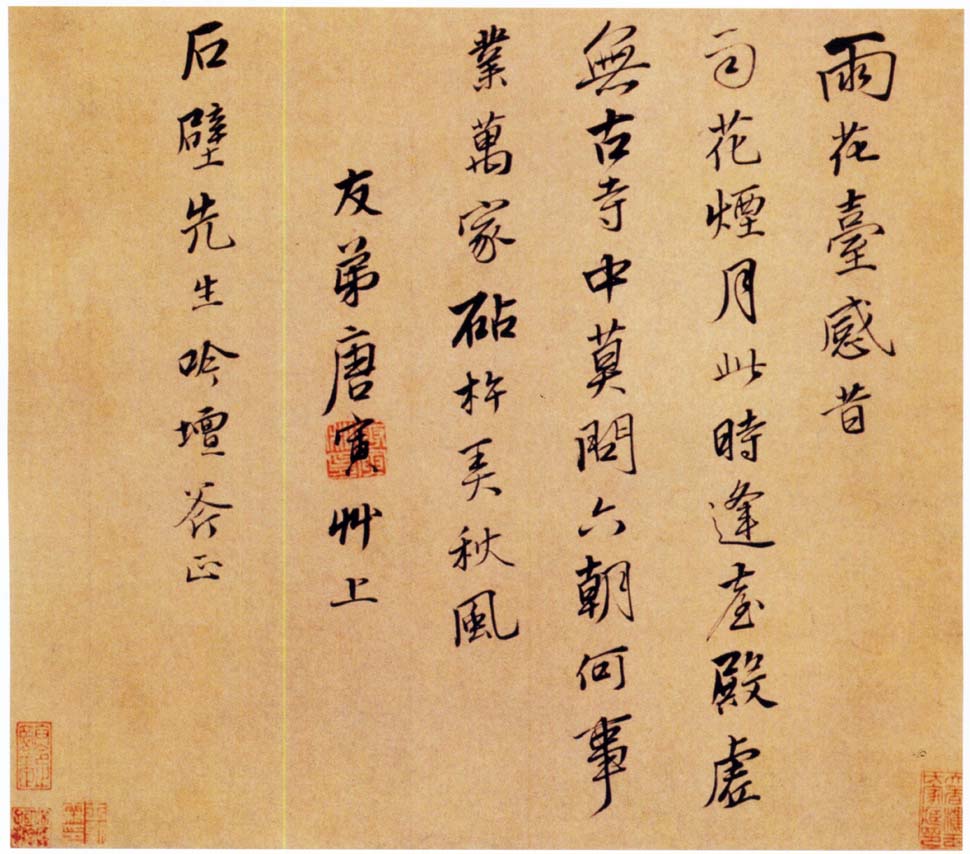 雨花臺感昔
花煙月此時逢臺殿虛
無古寺中莫問六朝何事
業萬家砧杵弄秋風
友弟唐寅艸上
石壁先生吟壇斧正